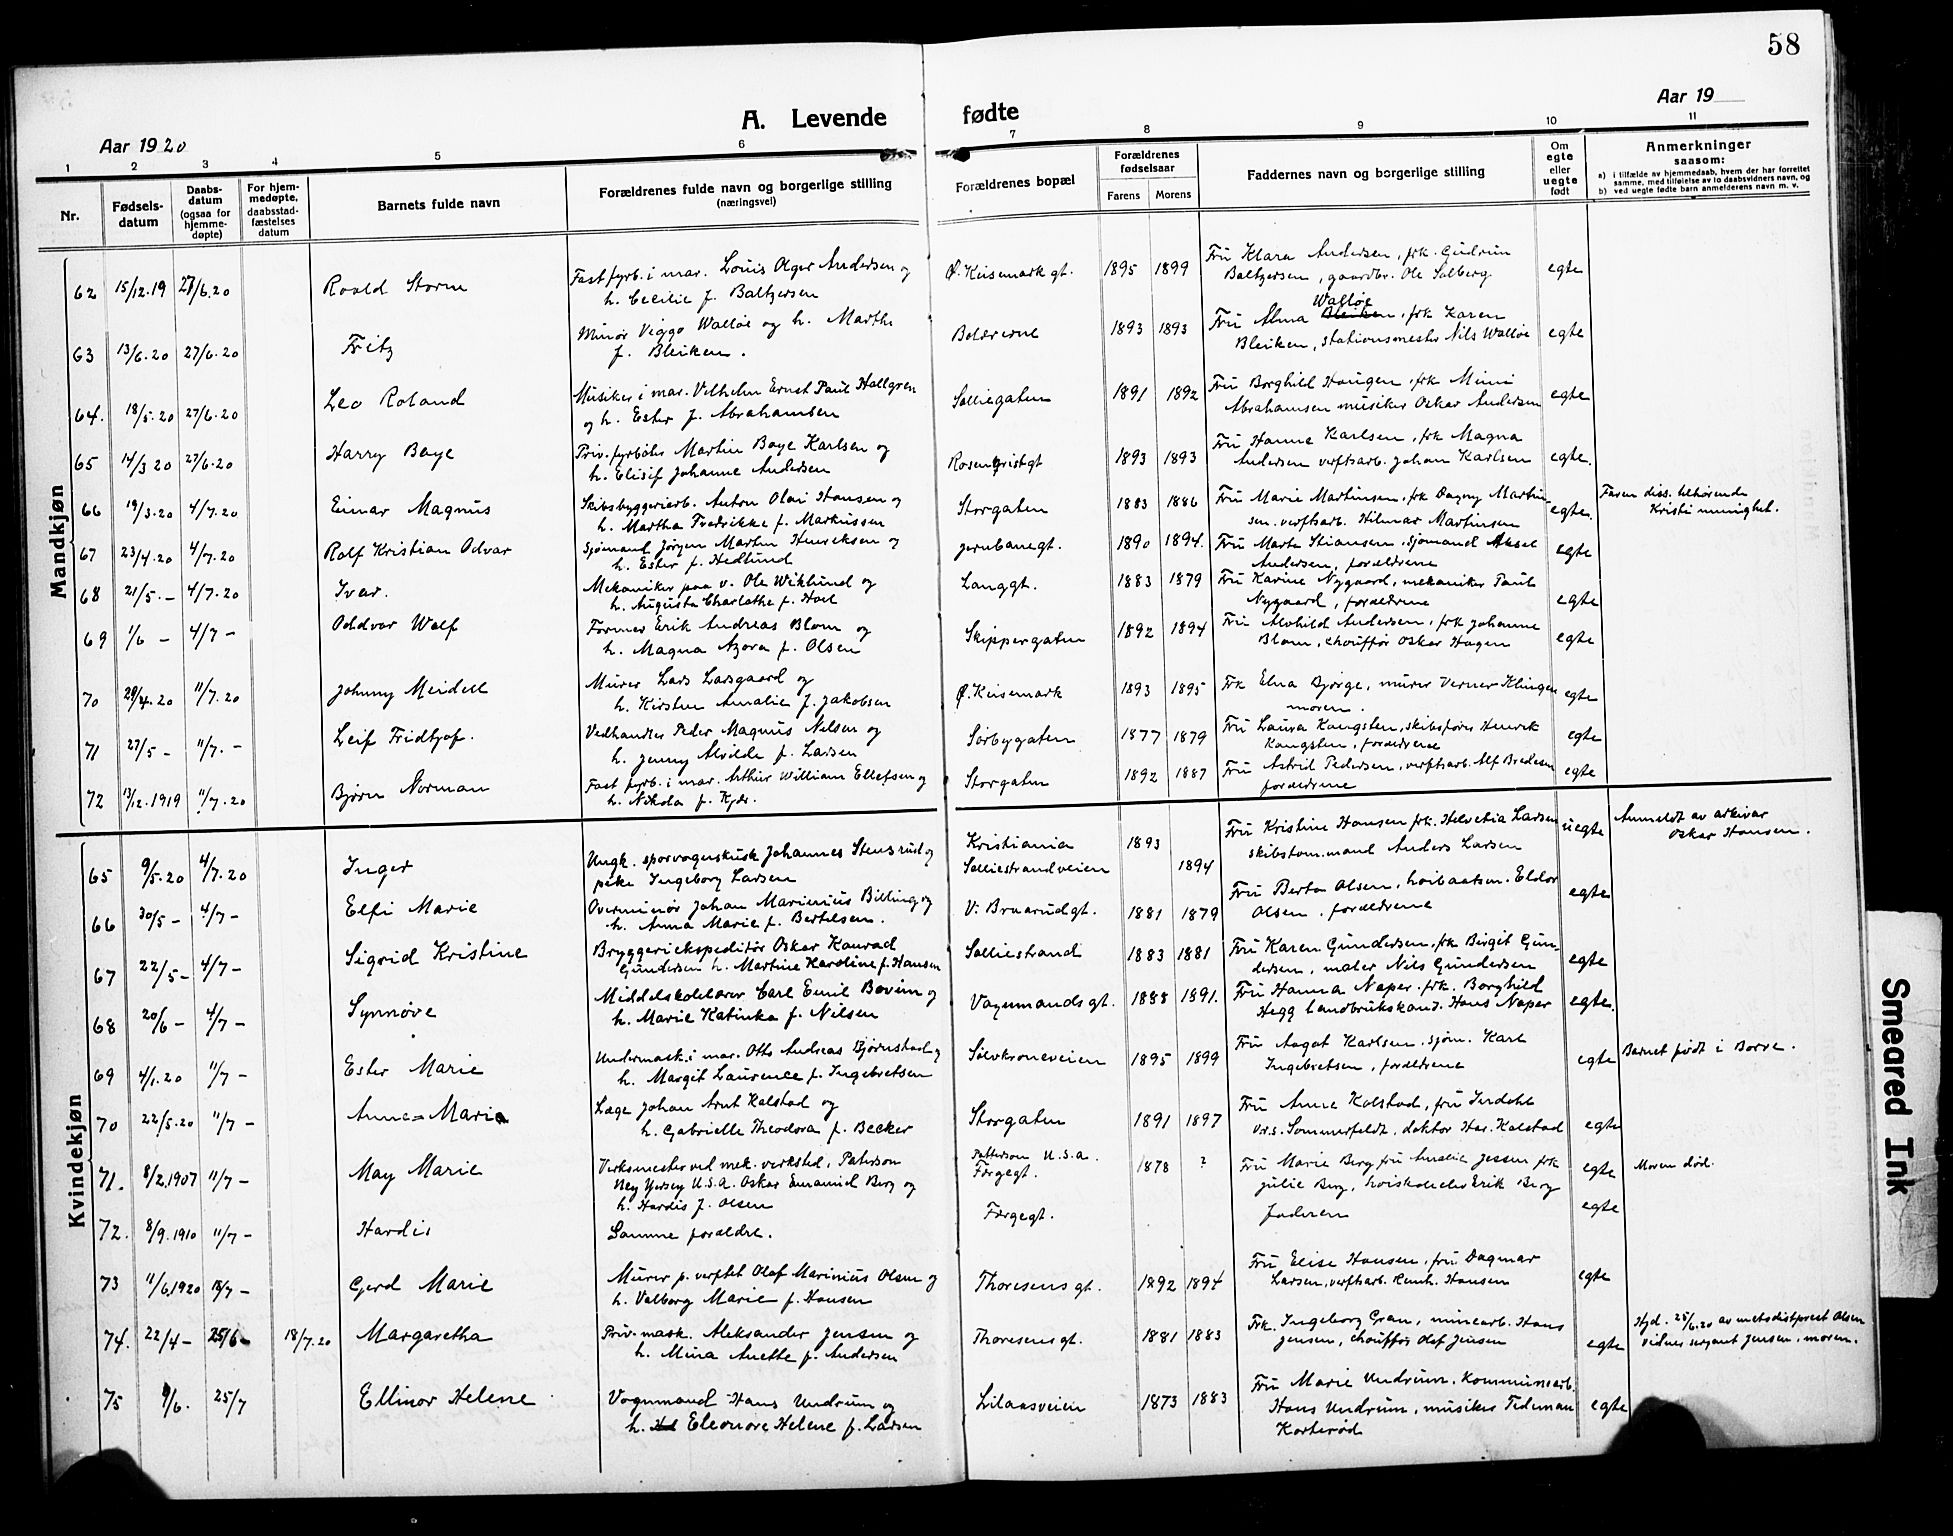 58
A. Levende fødte
Aar 1920
Aar 19
1 2 3 4 5 6 7 8 9 10 11
Nr.
Fødsels-
datum
Daabs-
datum
(ogsaa for
hjemme-
døpte)
For hjem-
medøpte,
daabsstad-
fæstelses
datum
Barnets fulde navn
Forældrenes fulde navn og borgerlige stilling
(næringsvei)
Forældrenes bopæl
Forældrenes
fødselsaar
Farens Morens
Faddernes navn og borgerlige stilling
Om
egte
eller
uegte
født
Anmerkninger
saasom:
a) i tilfælde av hjemmedaab, hvem der har forrettet
samme, med tilføielse av to daabsvidners navn, og
b) ved uegte fødte barn anmelderens navn m. v.
Mandkjøn
62 15/12.19 27/6.20 Roald Storm
Fast fyrb. i mar. Louis Olger Andersen og
h. Cecilie f. Baltzersen
Ø. Keisemark gt. 1895 1899
Fru Klara Andersen, frk. Gudrun
Baltzersen, gaardbr. Ole Solberg
egte
63 13/6.20 27/6.20 Fritz
Minør Viggo Walløe og h. Marthe
f. Bleiken.
Bolærerne 1893 1893
Walløe
Fru Alma Bleiken, frk Karen
Bleiken, stationsmester Nils Walløe
egte
64. 18/5.20 27/6.20 Leo Roland
Musiker i mar. Vilhelm Ernst Paul Hallgren
og h. Ester f. Abrahamsen
Solliegaten 1891 1892
Fru Borghild Haugen, frk Mimi
Abrahamsen musiker Oskar Andersen
egte
65 14/3 20 27/6.20 Harry Boye
Priv. fyrbøter Martin Boye Karlsen og
h. Elisif Johanne Andersen
Rosenqvistgt 1893 1893
Fru Hanne Karlsen, frk Magna
Andersen verftsarb. Johan Karlsen
egte.
66 19/3.20 4/7.20 Einar Magnus
Skibsbyggeriarb. Anton Olai Hansen og
h. Martha Fredrikke f. Markussen
Storgaten 1883 1886
Fru Marie Martinsen, frk Dagny Martin-
sen. verftsarb. Hilmar Martinsen
egte.
Faren diss. tilhørende
Kristi menighet.
67 23/4.20 4/7.20 Rolf Kristian Odvar
Sjømand Jørgen Martin Henriksen og
h. Ester f. Hedlund
Jernbanegt. 1890 1894.
Fru Marte Stiansen, sjømand Aksel
Andersen, forældrene
egte
68 21/5.- 4/7.20 Ivar.
Mekaniker paa v. Ole Wiklund og
h. Augusta Charlothe f. Hoel
Langgt. 1883 1879
Fru Karine Nygaard, mekaniker Paul
Nygaard, forældrene
egte
69 1/6 - 4/7 - Oddvar Wolf
Former Erik Andreas Blom og
h. Magna Azora f. Olsen
Skippergaten 1892 1894
Fru Alvhild Andersen, frk Johanne
Blom, chouffør Oskar Hagen
egte
70 29/4.20 11/7.20 Johnny Meidell
Murer Lars Larsgaard og
h. Kirsten Amalie f. Jakobsen
Ø. Keisemark 1893 1895
Frk Elna Bjørge, murer Verner Klingen
moren.
egte
71 27/5 - 11/7. - Leif Fridtjof.
Vedhandler Peder Magnus Nilsen og
h. Jenny Alvilde f. Larsen
Sørbygaten 1877 1879
Fru Laura Kongsten, skibsfører Henrik
Kongsten, forældrene
egte
72 13/12.1919 11/7.20 Bjørn Norman
Fast fyrb. i mar. Arthur William Ellefsen og
h. Nikola f. Kjær.
Storgaten 1892 1887
Fru Astrid Pedersen, verftsarb. Alf Bredesen
forældrene
egte
Kvindekjøn
65 9/5.20 4/7.20 Inger
Ungk. sporvognskusk Johannes Stensrud og
pike Ingeborg Larsen
Kristiania 1893
Solliestrandveien 1894
Fru Kristine Hansen frk. Helvetia Larsen
skibstøm.mand Anders Larsen
uegte
Anmeldt av arkivar
Oskar Hansen.
66 30/5 - 4/7 - Elfi Marie
Overminør Johan Marinius Billing og
h. Anna Marie f. Bertelsen.
V. Bruarudgt. 1881 1879
Fru Berta Olsen, hoibaatsm. Eldor
Olsen, forældrene
egte
67 22/5 - 4/7 - Sigrid Kristine
Bryggeriekspeditør Oskar Konrad
Gundersen h. Martine Karoline f. Hansen
Solliestrand 1883 1881
Fru Karen Gundersen, frk Birgit Gun-
dersen, maler Nils Gundersen
egte
68 20/6 - 4/7 - Synnøve
Middelskolelærer Carl Emil Bovim og
h. Marie Katinka f. Nilsen
Vognmandsgt. 1888 1891.
Fru Hanna Naper. frk. Borghild
Hegg landbrukskand. Hans Naper
egte.
69 4/1.20 11/7 - Ester Marie
Undermask. i mar. Otto Andreas Bjørnstad og
h. Margit Laurence f. Ingebretsen
Sølvkroneveien 1895 1899
Fru Aagot Karlsen. sjøm. Karl
Ingebretsen, forældrene
egte
Barnet født i Borre.
70 22/5.20 11/7 - Anne=Marie
Læge Johan Arnt Kolstad og
h. Gabrielle Theodora f. Becker
Storgaten 1891 1897
Fru Anne Kolstad, fru Indahl
o.r.s. Sommerfeldt, doktor Har. Kolstad
egte
71. 8/2.1907 11/7 - May Marie
Verksmester ved mek. verksted, Paterson
Ney Yersey U.S.A. Oskar Emanuel Berg og
h. Hardis f. Olsen
Patterson U.S.A.
Færgegt. 1878 ?
Fru Marie Berg fru Amalie Jessen frk
Julie Berg, høiskoleelev Erik Berg
faderen
egte
Moren død.
72. 8/9.1910 11/7 - Hardis
Samme forældre.
Færgegt.
egte
73 11/6.1920 18/7 - Gerd Marie
Murer p. verftet Olaf Marinius Olsen og
h. Valborg Marie f. Hansen
Thoresens gt. 1892 1894
Fru Elise Hansen, fru Dagmar
Larsen, verftsarb. Reinh. Hansen
egte
74. 22/4 - 25/6 - 18/7.20 Margaretha
Priv. mask. Aleksander Jensen og
h. Mina Anette f. Andersen
Thoresensgt. 1881 1883
Frk. Ingeborg Gran, minearb. Hans
Jensen, chouffør Olaf Jensen
egte
Hjd. 25/6.20 av metodistprest Olsen
vidner sergant Jensen, moren.
75 9/6. 25/7 Ellinor Helene
Vognmand Hans Undrum og
h. Eleonore Helene f. Larsen
Liloasveien 1873 1883
Fru Marie Undrum. Kommunearb.
Hans Undrum, musiker Tideman
Korterød
egte
Smeared Ink